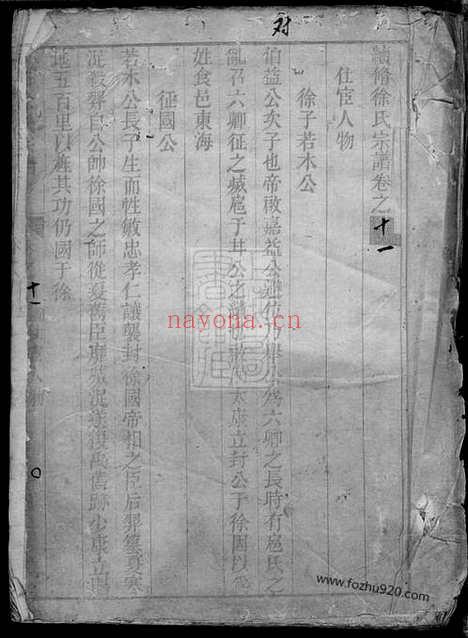 对
續脩徐氏宗譜卷之十一
仕宦人物
徐子若木公
伯益公次子也帝啟嘉益公遜位乃舉 為六卿之長時有扈氏之
亂召六卿征之滅扈于甘公之 立封公于徐因以為
姓食邑東海
征國公
若木公長子生而性敏忠孝仁讓襲封徐國帝相之臣后羿篡夏寒
浞殺羿自公帥徐國之師從夏舊臣靡滅浞遂復禹舊跡少康立錫
地五百里以旌其功仍國于徐
十一
nayona.cn
www.fozhu920.com